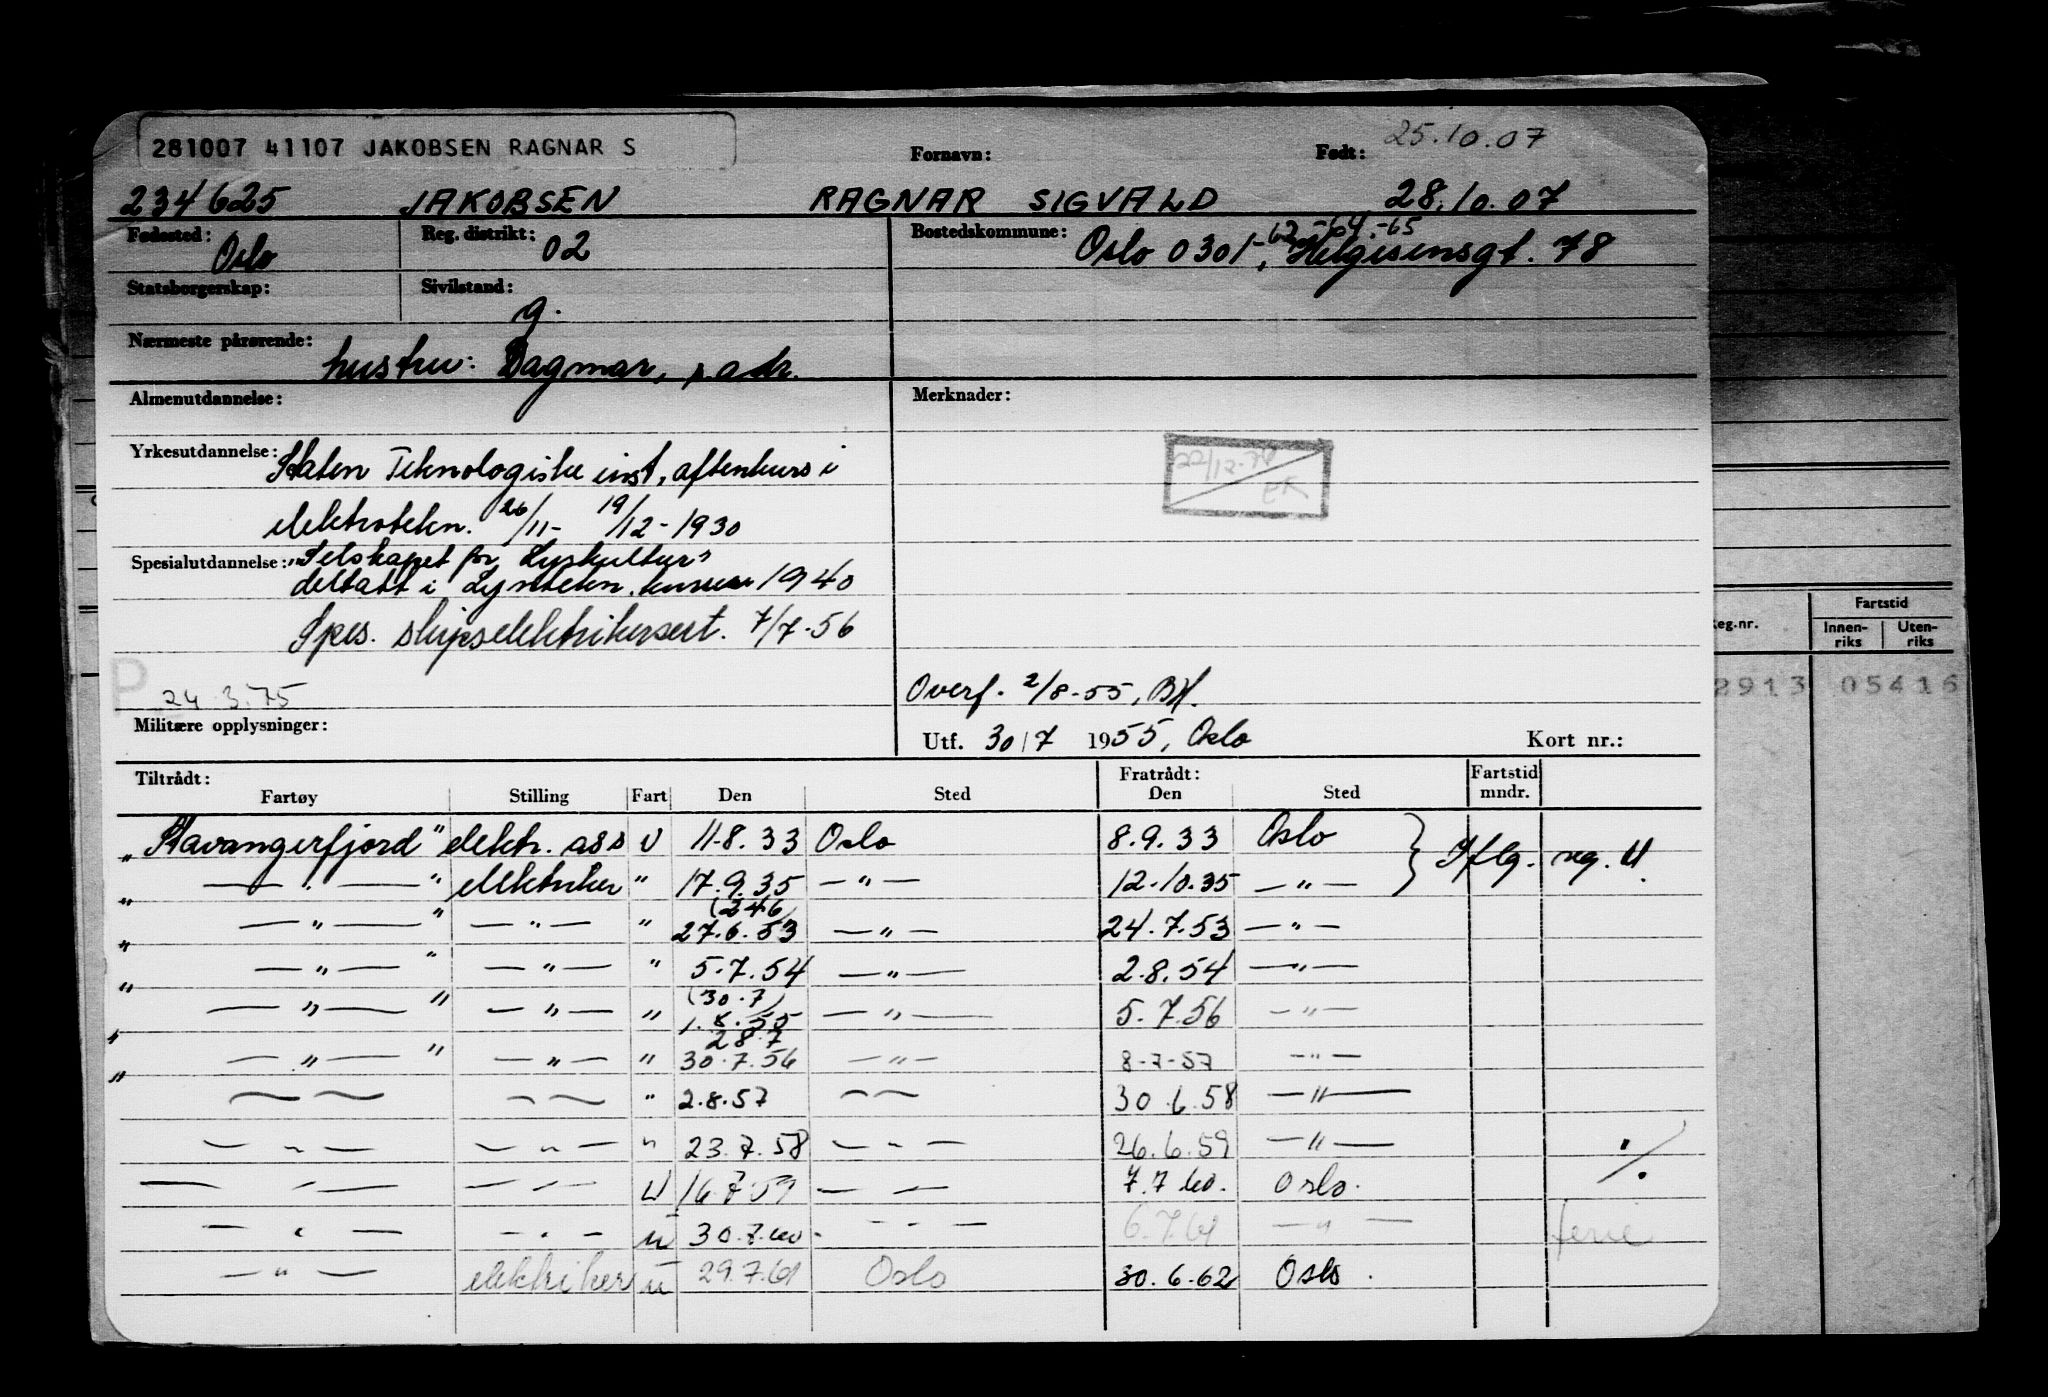 25.10.07
281007 41107 JAKOBSEN RAGNAR S
Fornavn: Født:
234625 JAKOBSEN RAGNAR SIGVALD 28.10.07
Fødested: Oslo Reg. distrikt: 02 Bostedskommune: Oslo 0301, -62, -64, -65 Helgesensgt. 78
Statsborgerskap: Sivilstand: g.
Nærmeste pårørende: hustru: Dagmar, s. adr.
Almenutdannelse: Merknader:
Yrkesutdannelse: Staten Teknologiske inst, aftenkurs i
22/12-
elektrotekn. 26/11- 19/12-1930
Spesialutdannelse: "Selskapet for Lyskultur"
deltatt i Lystekn. 1940
Spes. skipselektrikersert. 7/7-56
P 24.3.75
Overf. 2/8-55,
Militære opplysninger:
Utf. 30/7 1955, Oslo Kort nr.:
Tiltrådt: Fratrådt: Fartstid
Fartøy Stilling Fart Den Sted Den Sted mndr.
"Stavangerfjord" elektr. ass U 11-8.33 Oslo 8.9.33 Oslo } Iflg. reg. U.
" — " — " elektriker " 17.9.35 — " — 12-10.35 — " —
(24 6)
" — " — " — " — " 27.6.53 — " — 24.7.53 — " —
" — " — " — " — " 5.7.54 — " — 2.8.54 — " —
(30.7)
" — " — " — " — " 1.8.55 — " — 5.7.56 — " —
28.7
" — " — " — " — " 30.7.56 — " — 8-7-57 — " —
— — — — " 2.8.57 — — 30.6.58 — " —
— " — — " — " 23.7.58 — " — 26.6.59 — " — ./.
— " — — " — U 16.7.59 — — 7.7.60. Oslo.
— " — — " — U 30.7.60. — " — 6.7.61 — " — ferie
— " — elektriker U 29.7.61 Oslo 30.6.62 Oslo.
Reg.nr. Fartstid
Innen-riks Uten-riks
2913 05416